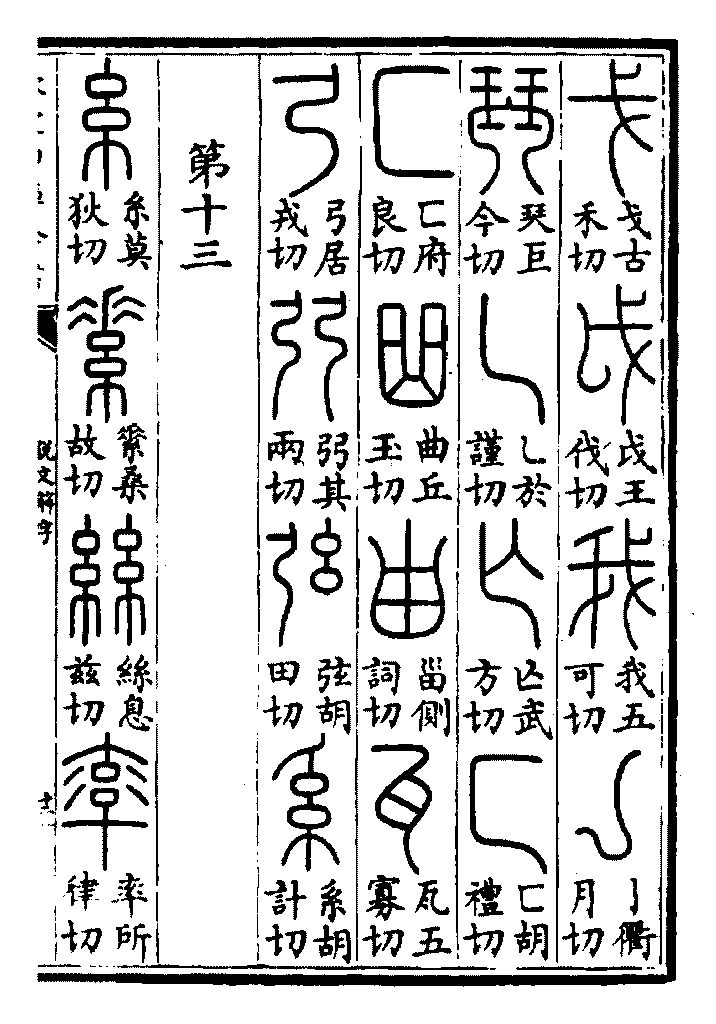 戈 戈古禾切 戉 戉王伐切 我 我五可切 亅 亅衢月切
珡 珡巨今切 乚 乚於謹切 亾 亾武方切 匸 匸胡禮切
匚 匚府良切 曲 曲丘玉切 甾 甾側詞切 瓦 瓦五寡切
弓 弓居戎切 弜 弜其兩切 弦 弦胡田切 系 系胡計切
第十三
糸 糸莫狄切 素 素桑故切 絲 絲息兹切 率 率所律切
說文解字